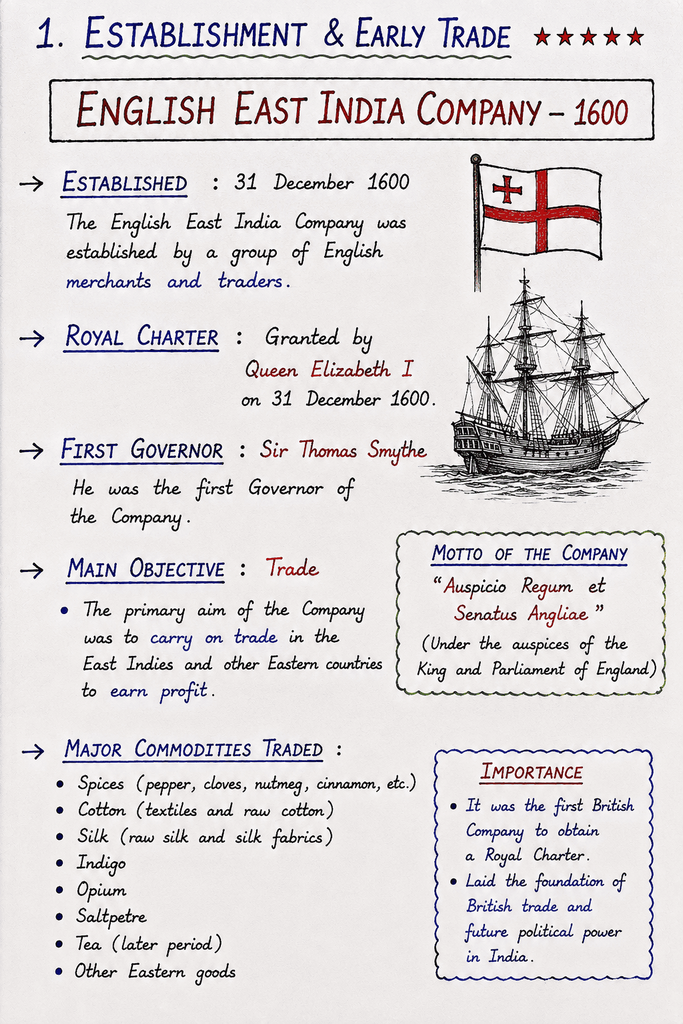 1. ESTABLISHMENT & EARLY TRADE ★★★★★
ENGLISH EAST INDIA COMPANY – 1600
→ ESTABLISHED : 31 December 1600
The English East India Company was
established by a group of English
merchants and traders.
→ ROYAL CHARTER : Granted by
Queen Elizabeth I
on 31 December 1600.
→ FIRST GOVERNOR : Sir Thomas Smythe
He was the first Governor of
the Company.
→ MAIN OBJECTIVE : Trade
• The primary aim of the Company
was to carry on trade in the
East Indies and other Eastern countries
to earn profit.
MOTTO OF THE COMPANY
"Auspicio Regum et
Senatus Angliae"
(Under the auspices of the
King and Parliament of England)
→ MAJOR COMMODITIES TRADED :
• Spices (pepper, cloves, nutmeg, cinnamon, etc.)
• Cotton (textiles and raw cotton)
• Silk (raw silk and silk fabrics)
• Indigo
• Opium
• Saltpetre
• Tea (later period)
• Other Eastern goods
IMPORTANCE
• It was the first British
Company to obtain
a Royal Charter.
• Laid the foundation of
British trade and
future political power
in India.